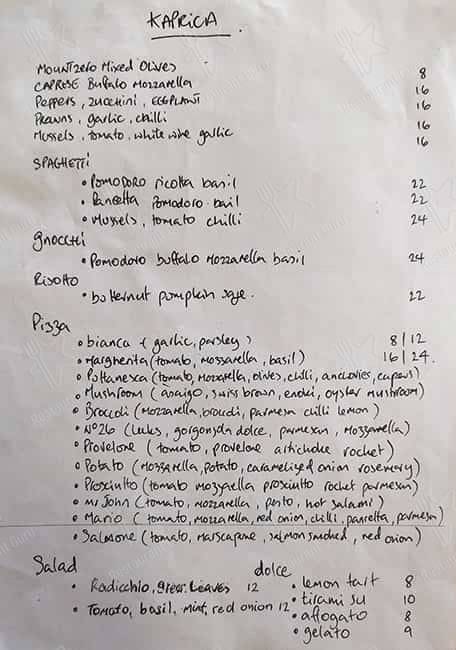 KAPRICA
MOUNT ZERO Mixed Olives 8
CAPRESE Buffalo Mozzarella 16
Peppers, zucchini, EGGPLANT 16
Prawns, garlic, chilli 16
Mussels, tomato, white wine garlic 16
SPAGHETTI
• Pomodoro ricotta basil 22
• Pancetta Pomodoro basil 22
• Mussels, tomato chilli 24
gnocchi
• Pomodoro buffalo Mozzarella basil 24
Risotto
• butternut pumpkin sage. 22
Pizza
• bianca (garlic, parsley) 8 | 12
• Margherita (tomato, mozzarella, basil) 16 | 24.
• Puttanesca (tomato, mozzarella, olives, chilli, anchovies, capers)
• Mushroom (asiago, swiss brown, enoki, oyster mushroom)
• Broccoli (mozzarella, brocoli, parmesan chilli lemon)
• Nº26 (leeks, gorgonzola dolce, parmesan, mozzarella)
• Provelone (tomato, provelone artichoke rocket)
• Potato (mozzarella, potato, caramelized onion rosemary)
• Prosciutto (tomato mozzarella prosciutto rocket parmesan)
• Mr John (tomato, mozzarella, pesto, hot salami)
• Mario (tomato, mozzarella, red onion, chilli, pancetta, parmesan)
• Salmone (tomato, marscapone, salmon smoked, red onion)
Salad
• Radicchio, green leaves 12
• Tomato, basil, mint, red onion 12
dolce
• lemon tart 8
• tirami su 10
• affogato 8
• gelato 9